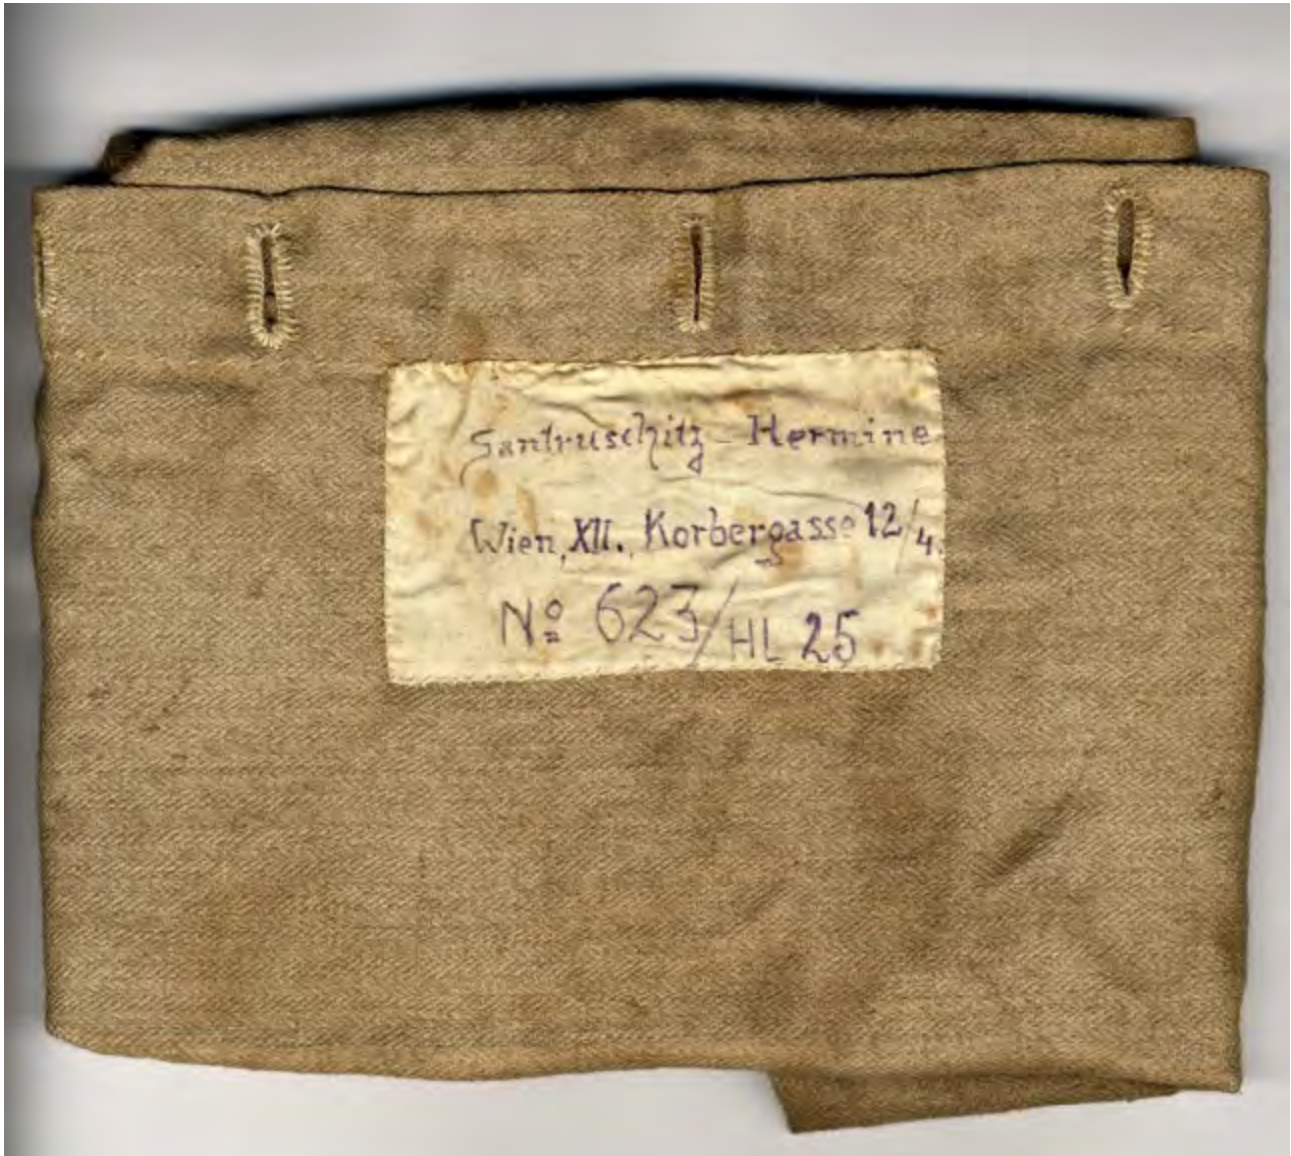 Santruschitz - Hermine
Wien, XII., Korbergasse 12/4.
Nº 623/HL 25